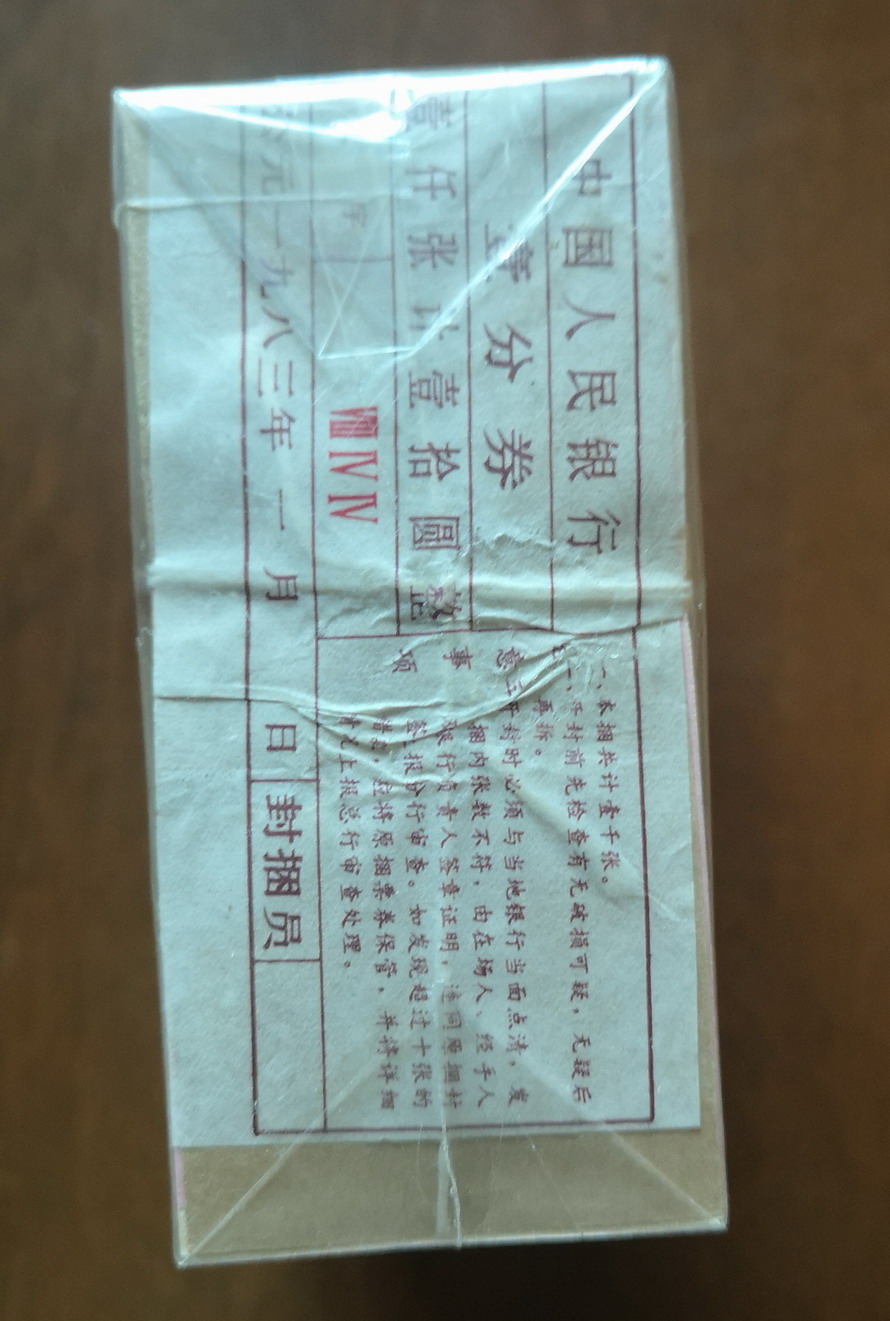 中国人民银行
壹分券
壹仟张计壹拾圆整
字
ⅧⅣⅣ
公元一九八三年一月 日
封捆员
意
事
项
一、本捆共计壹千张。
二、开封前先检查有无破损可疑，无疑后
再拆。
三、开封时必须与当地银行当面点清，发
捆内张数不符，由在场人、经手人
银行负责人签章证明，连同原捆封
签上报分行审查。如发现超过十张的
错款，应将原捆票券保管，并将详细
情况上报总行审查处理。